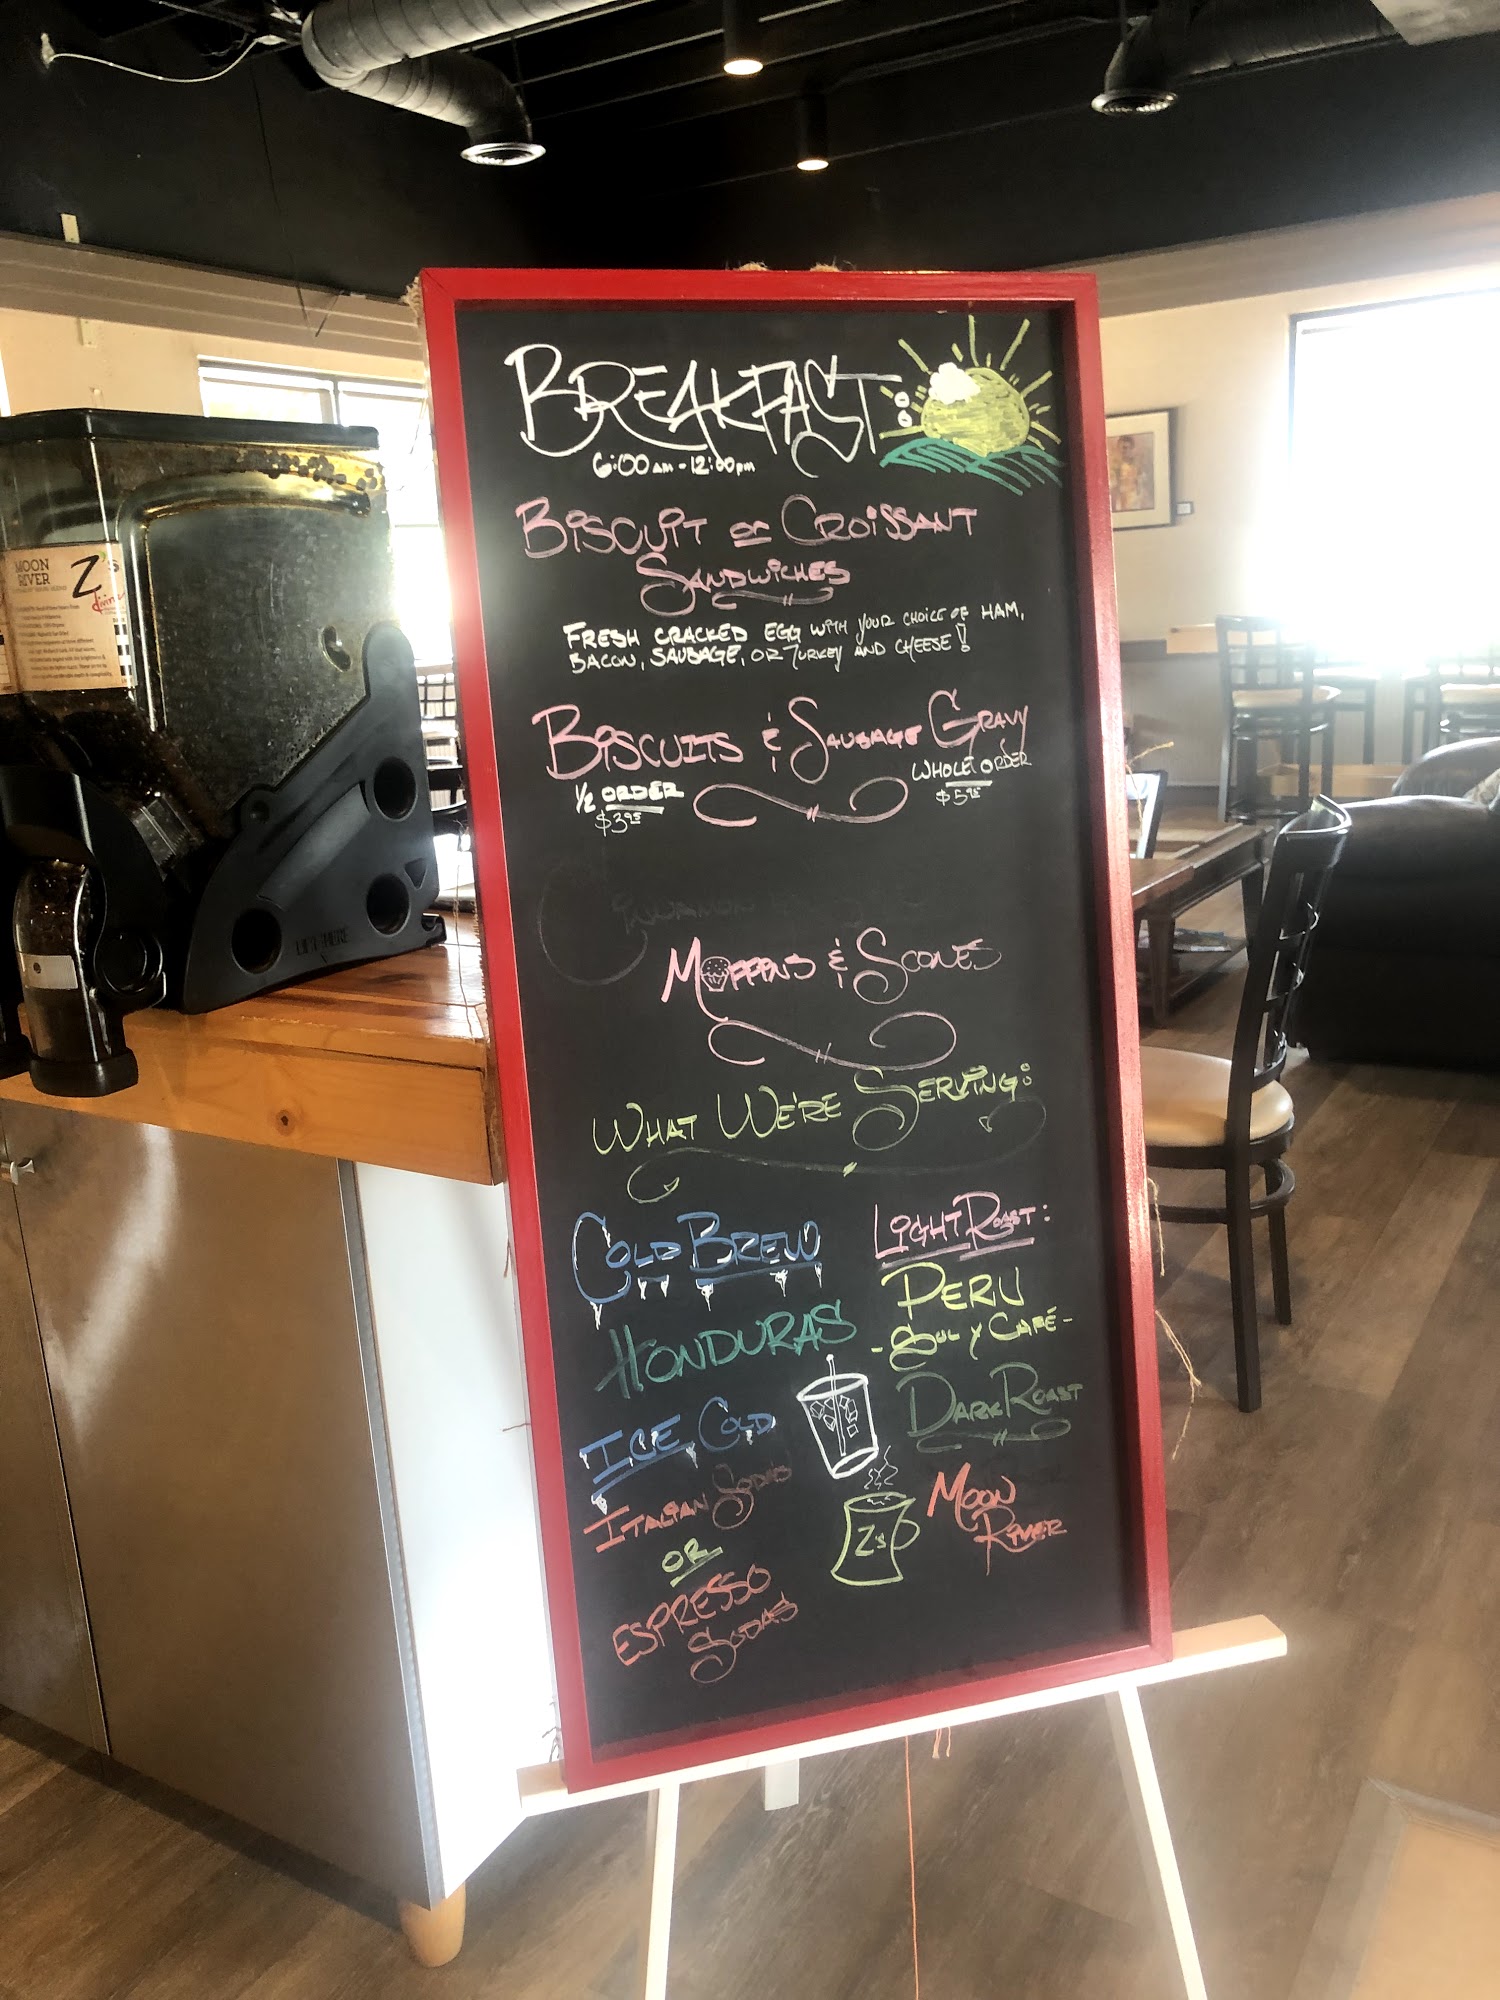 BREAKFAST:
6:00am - 12:00pm
BISCUIT or CROISSANT
SANDWICHES
FRESH CRACKED EGG WITH YOUR CHOICE OF HAM,
BACON, SAUSAGE, OR TURKEY AND CHEESE!
BISCUITS & SAUSAGE GRAVY
1/2 ORDER
$3.95
WHOLE ORDER
$5.95
CINNAMON
MUFFINS & SCONES
WHAT WE'RE SERVING:
COLD BREW
HONDURAS
ICE COLD
ITALIAN SODAS
OR
ESPRESSO
SODAS
LIGHT ROAST:
PERU
- SOL Y CAFÉ -
DARK ROAST
MOON
RIVER
Z's
MOON
RIVER
Z's
divine
LIFT HERE